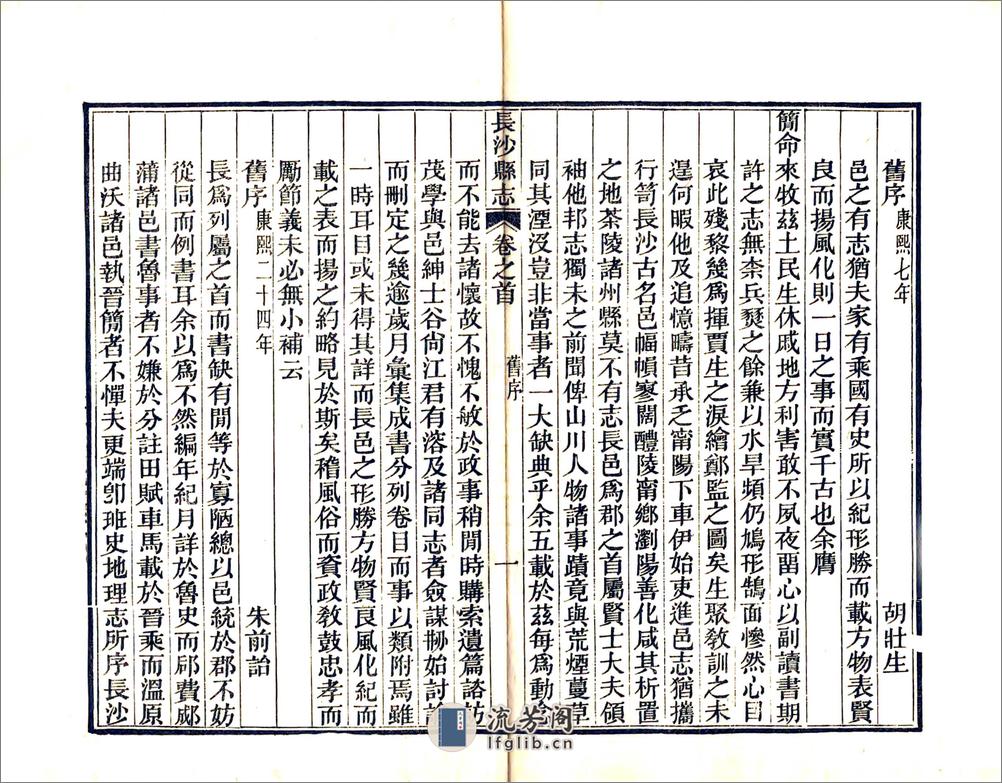 舊序康熙七年 胡壯生
邑之有志猶夫家有乘國有史所以紀形勝而載方物表賢
良而揚風化則一日之事而實千古也余膺
簡命來牧茲土民生休戚地方利害敢不夙夜畱心以副讀書期
許之志無柰兵燹之餘兼以水旱頻仍鳩形鵠面慘然心目
哀此殘黎幾爲揮賈生之淚繪鄭監之圖矣生聚敎訓之未
遑何暇他及追憶疇昔承乏甯陽下車伊始吏進邑志猶攜
行笥長沙古名邑幅幀寥闊醴陵甯鄉瀏陽善化咸其析置
之地茶陵諸州縣莫不有志長邑爲郡之首屬賢士大夫領
袖他邦志獨未之前聞俾山川人物諸事蹟竟與荒煙蔓草
同其湮沒豈非當事者一大缺典乎余五載於茲每爲動念
長沙縣志 卷之首 舊序 一
而不能去諸懷故不愧不敏於政事稍閒時購索遺篇諮訪
茂學與邑紳士谷尙江君有溶及諸同志者僉謀刱始討論
而刪定之幾逾歲月彙集成書分列卷目而事以類附焉雖
一時耳目或未得其詳而長邑之形勝方物賢良風化紀而
載之表而揚之約略見於斯矣稽風俗而資政敎鼓忠孝而
勵節義未必無小補云
舊序康熙二十四年 朱前詒
長爲列屬之首而書缺有閒等於寡陋總以邑統於郡不妨
從同而例書耳余以爲不然編年紀月詳於魯史而郈費郕
蒲諸邑書魯事者不嫌於分註田賦車馬載於晉乘而溫原
曲沃諸邑執晉簡者不憚夫更端卽班史地理志所序長沙
流芳閣
lfglib.cn